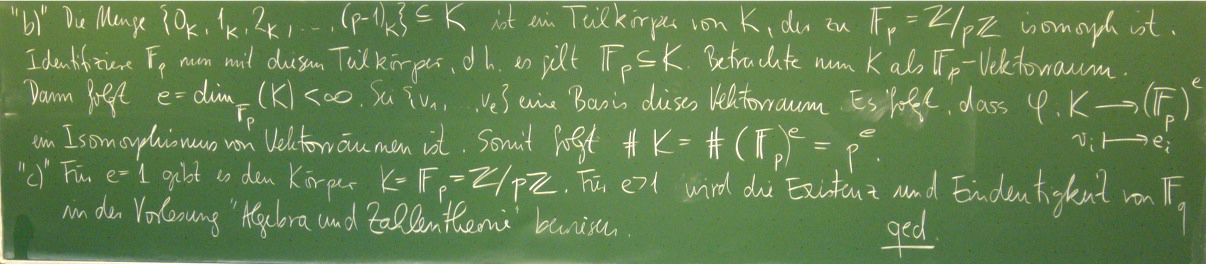 "b)" Die Menge {0_K, 1_K, 2_K, ..., (p-1)_K} ⊆ K ist ein Teilkörper von K, der zu 𝔽_p = ℤ/pℤ isomorph ist.
Identifiziere 𝔽_p nun mit diesem Teilkörper, d.h. es gilt 𝔽_p ⊆ K. Betrachte nun K als 𝔽_p-Vektorraum.
Dann folgt e = dim_{𝔽_p}(K) < ∞. Sei {v_1, ..., v_e} eine Basis dieses Vektorraum. Es folgt, dass φ: K → (𝔽_p)^e
ein Isomorphismus von Vektorräumen ist. Somit folgt # K = # (𝔽_p)^e = p^e. v_i ↦ e_i
"c)" Für e=1 gibt es den Körper K = 𝔽_p = ℤ/pℤ. Für e>1 wird die Existenz und Eindeutigkeit von 𝔽_q
in der Vorlesung "Algebra und Zahlentheorie" bewiesen. qed.